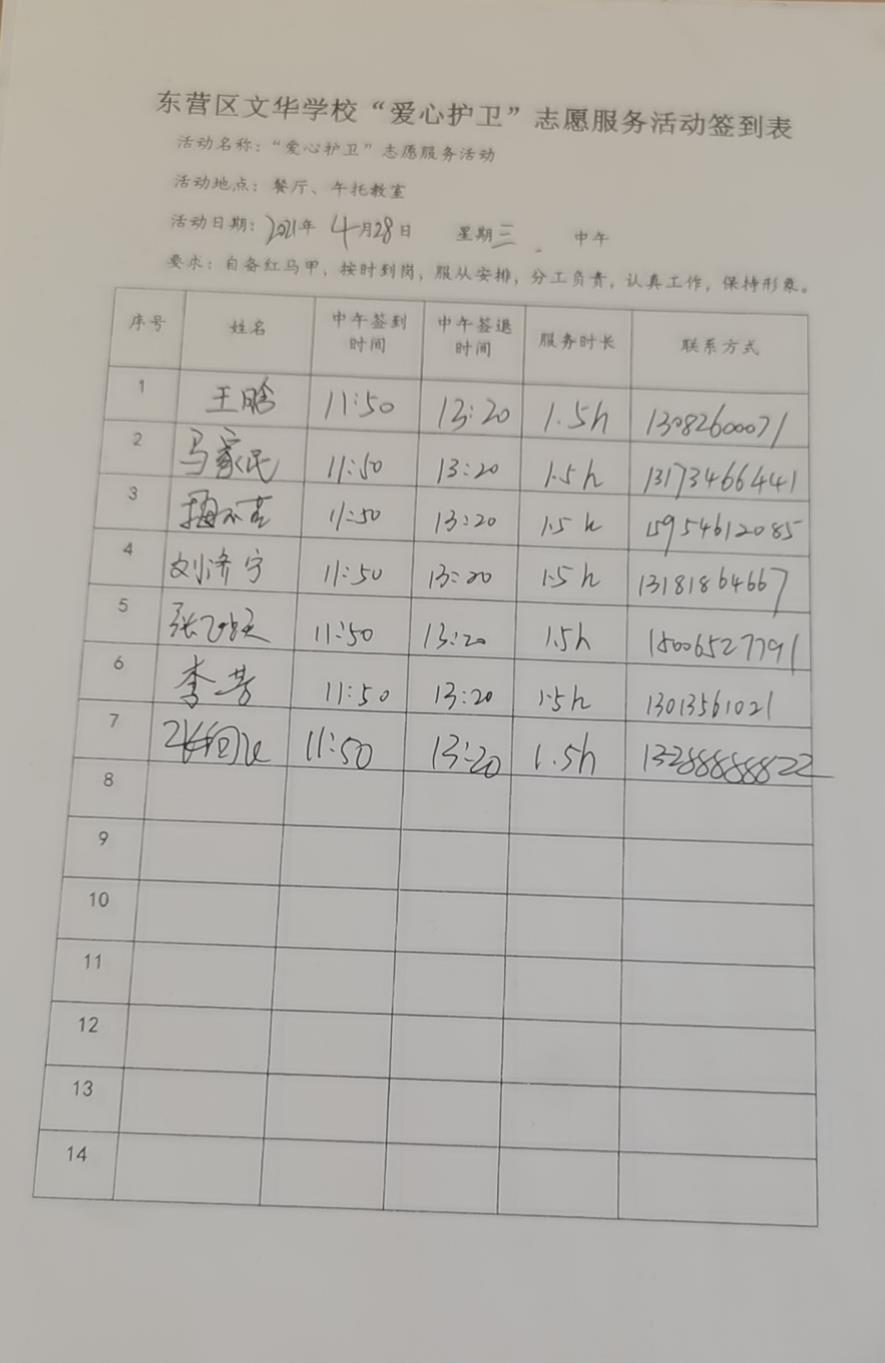 东营区文华学校“爱心护卫”志愿服务活动签到表
活动名称：“爱心护卫”志愿服务活动
活动地点：餐厅、午托教室
活动日期：2021年 4月28日 星期三 中午
要求：自备红马甲，按时到岗，服从安排，分工负责，认真工作，保持形象。
序号 姓名 中午签到时间 中午签退时间 服务时长 联系方式
1 王晗 11:50 13:20 1.5h 13082600071
2 马家民 11:50 13:20 1.5h 13173466441
3 11:50 13:20 1.5h 15954612085
4 刘济宁 11:50 13:20 1.5h 13181864667
5 张 11:50 13:20 1.5h 15006527791
6 李芳 11:50 13:20 1.5h 13013561021
7 11:50 13:20 1.5h
8
9
10
11
12
13
14